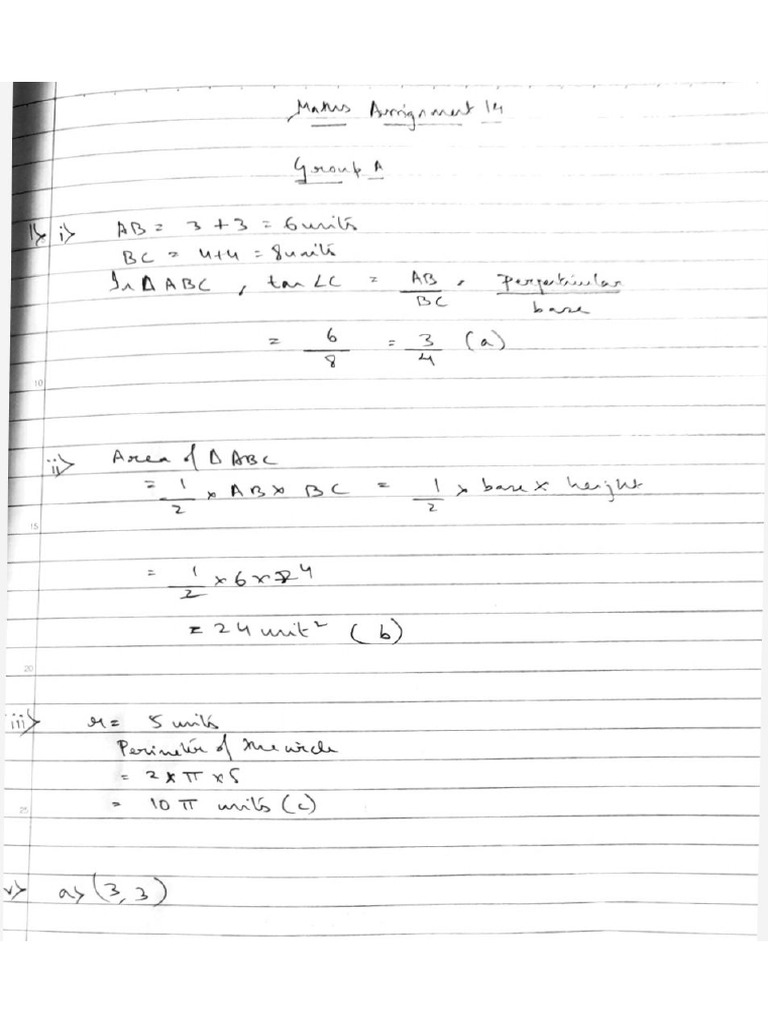 Maths Assignment 14
Group A
1> i> AB = 3 + 3 = 6 units
BC = 4+4 = 8 units
In Δ ABC , tan ∠C = AB/BC , perpenticular/base
= 6/8 = 3/4 (a)
10
ii> Area of Δ ABC
= 1/2 × AB × BC = 1/2 × base × height
15
= 1/2 × 6 × 4
= 24 unit² (b)
20
iii> r = 5 units
Perimeter of the circle
= 2 × π × 5
= 10 π units (c)
25
v> a> (3, 3)